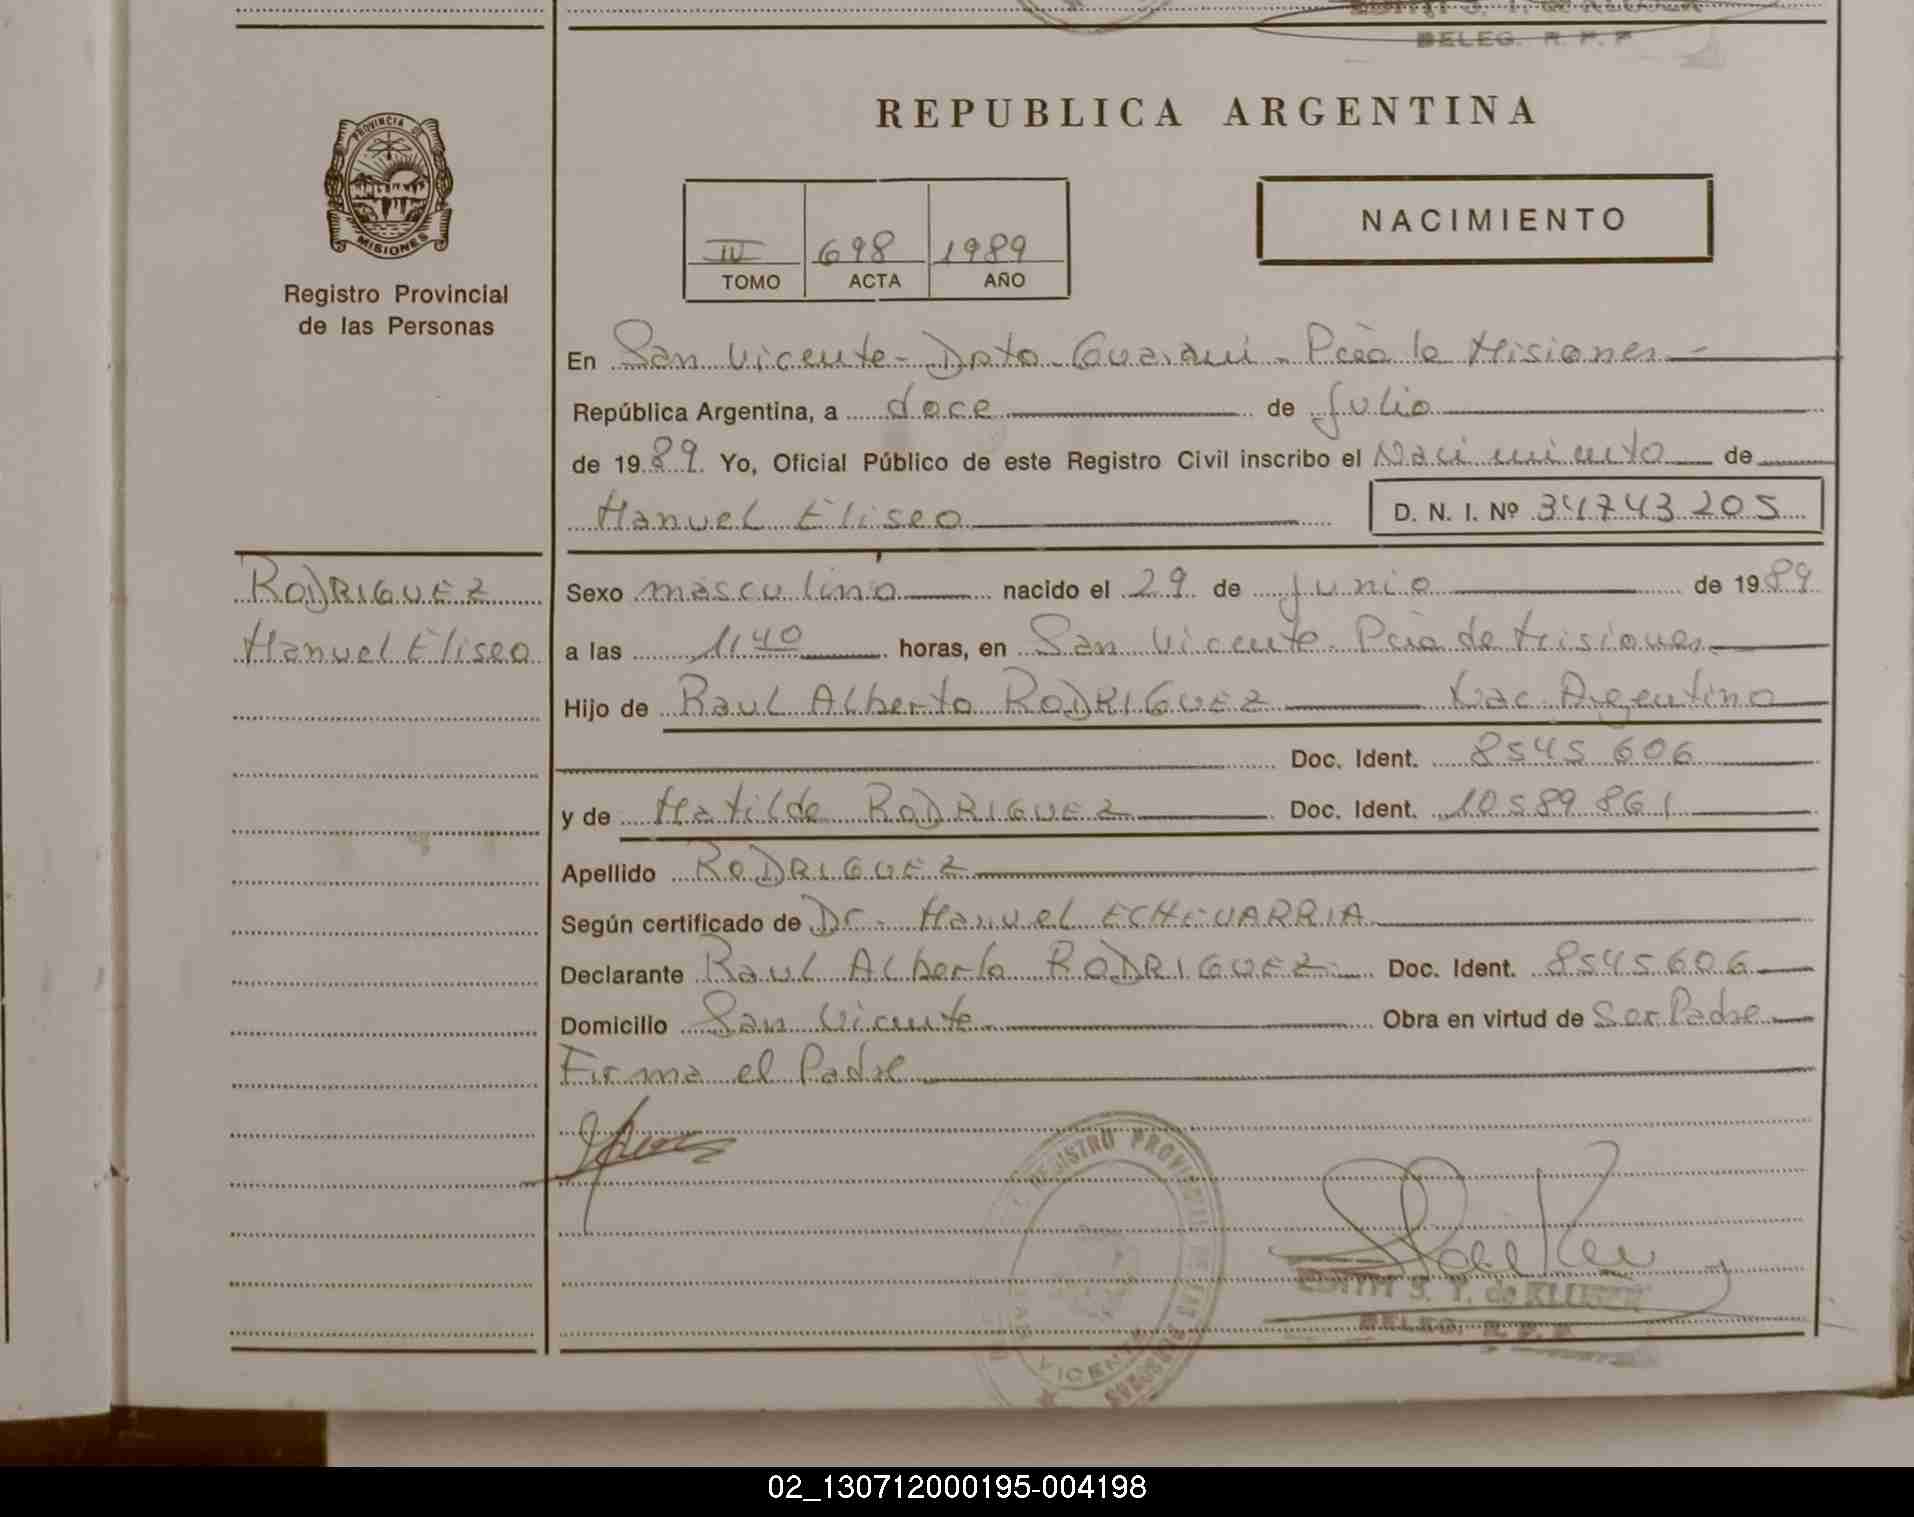 BELEG. R. P. P
REPUBLICA ARGENTINA
PROVINCIA DE
MISIONES
Registro Provincial
de las Personas
IV 698 1989
TOMO ACTA AÑO
NACIMIENTO
En San Vicente - Dpto. Guarani - Pcia de Misiones -
República Argentina, a doce de Julio
de 1989. Yo, Oficial Público de este Registro Civil inscribo el Nacimiento de
Manuel Eliseo D. N. I. Nº 34743205
RODRIGUEZ
Manuel Eliseo
Sexo masculino nacido el 29 de junio de 1989
a las 11 40 horas, en San Vicente - Pcia de Misiones
Hijo de Raul Alberto RODRIGUEZ Nac. Argentino
Doc. Ident. 8545 606
y de Matilde RODRIGUEZ Doc. Ident. 10589.861
Apellido RODRIGUEZ
Según certificado de Dr. Manuel ECHEVARRIA
Declarante Raul Alberto RODRIGUEZ Doc. Ident. 8545606
Domicilio San Vicente Obra en virtud de Ser Padre
Firma el Padre
REGISTRO PROVINCIAL DE LAS PERSONAS
VICENTE
EDITH S. T. de
BELEG. R. P. P.
02_130712000195-004198